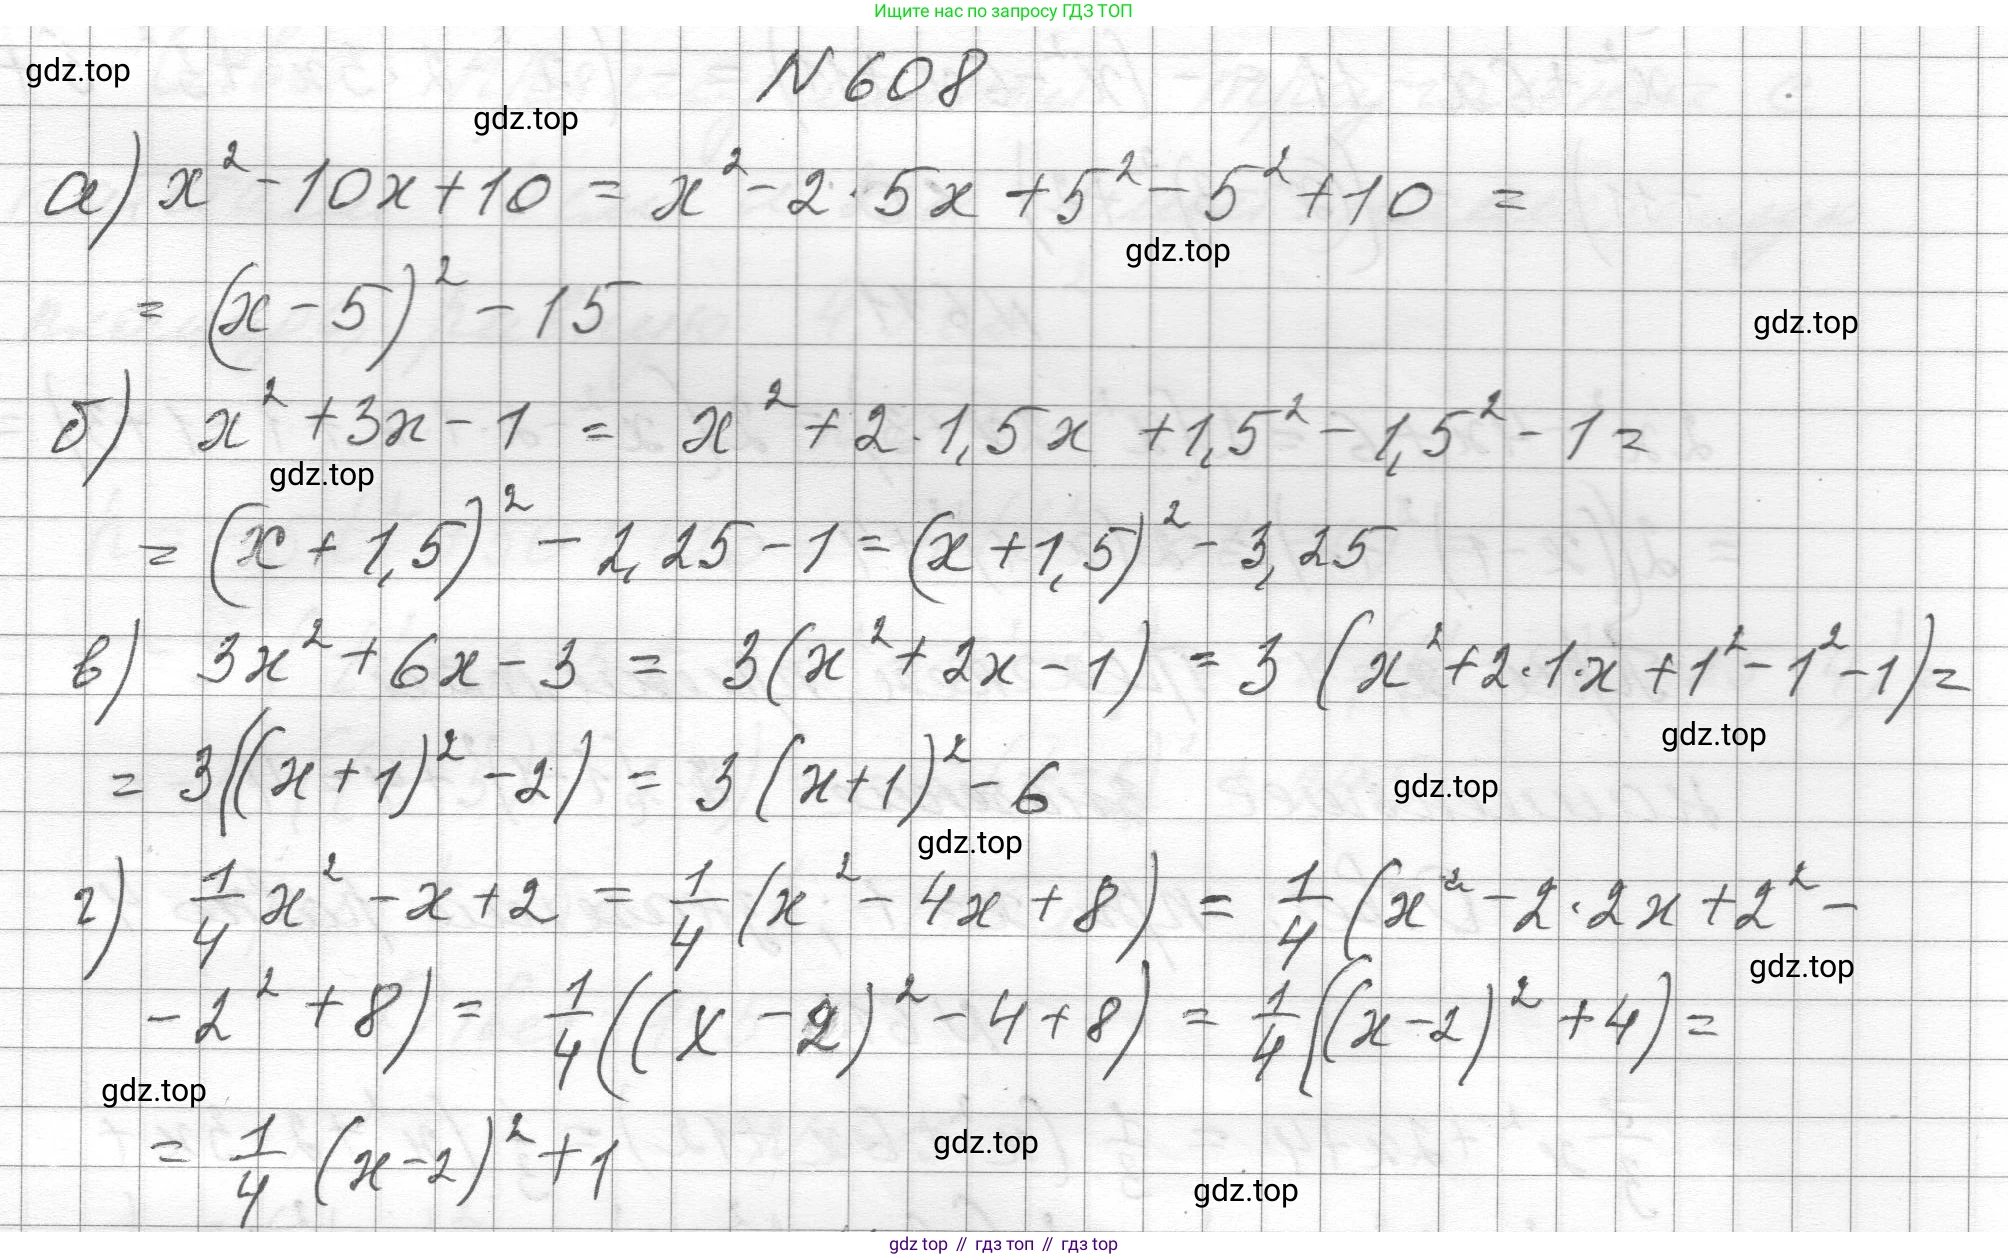 Ищите нас по запросу ГДЗ ТОП
N 608
gdz.top
gdz.top
а) x² - 10x + 10 = x² - 2 · 5x + 5² - 5² + 10 =
gdz.top
= (x - 5)² - 15
gdz.top
б) x² + 3x - 1 = x² + 2 · 1,5x + 1,5² - 1,5² - 1 =
gdz.top
= (x + 1,5)² - 2,25 - 1 = (x + 1,5)² - 3,25
в) 3x² + 6x - 3 = 3(x² + 2x - 1) = 3(x² + 2 · 1 · x + 1² - 1² - 1) =
gdz.top
= 3((x + 1)² - 2) = 3(x + 1)² - 6
gdz.top
gdz.top
г) 1/4 x² - x + 2 = 1/4 (x² - 4x + 8) = 1/4 (x² - 2 · 2x + 2² -
gdz.top
- 2² + 8) = 1/4 ((x - 2)² - 4 + 8) = 1/4 ((x - 2)² + 4) =
gdz.top
= 1/4 (x - 2)² + 1
gdz.top
gdz.top
gdz top // гдз топ // гдз top